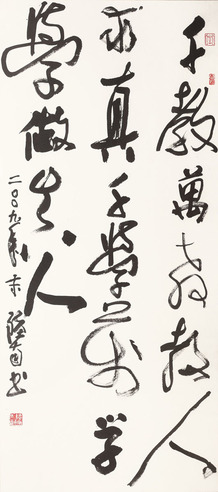 千教萬教教人
求真千學萬學
學做真人
二〇〇九年末 書